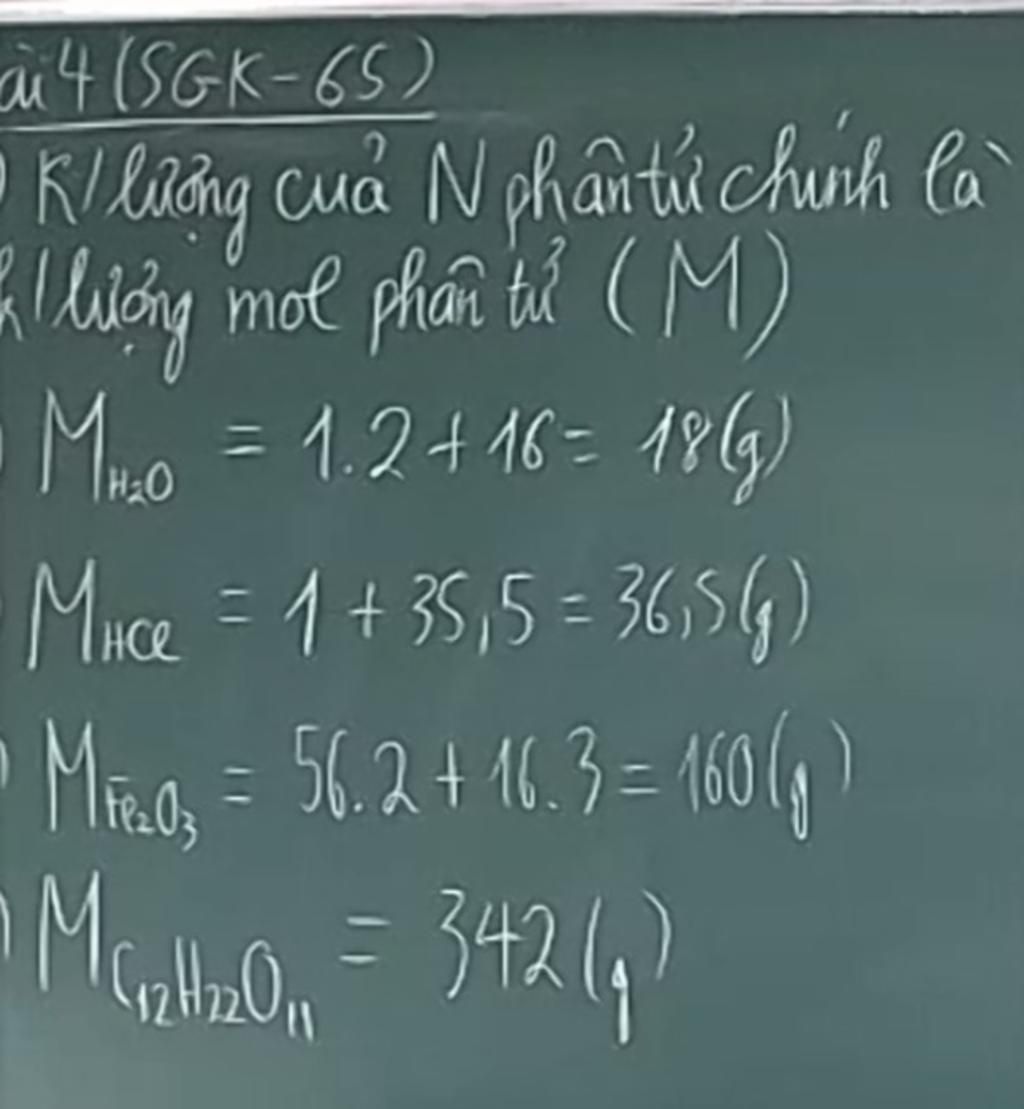 ài 4 (SGK - 65)
) K/lượng của N phân tử chính là
k/lượng mol phân tử (M)
) M H₂O = 1.2 + 16 = 18(g)
M HCl = 1 + 35,5 = 36,5(g)
) M Fe₂O₃ = 56.2 + 16.3 = 160(g)
) M C₁₂H₂₂O₁₁ = 342(g)